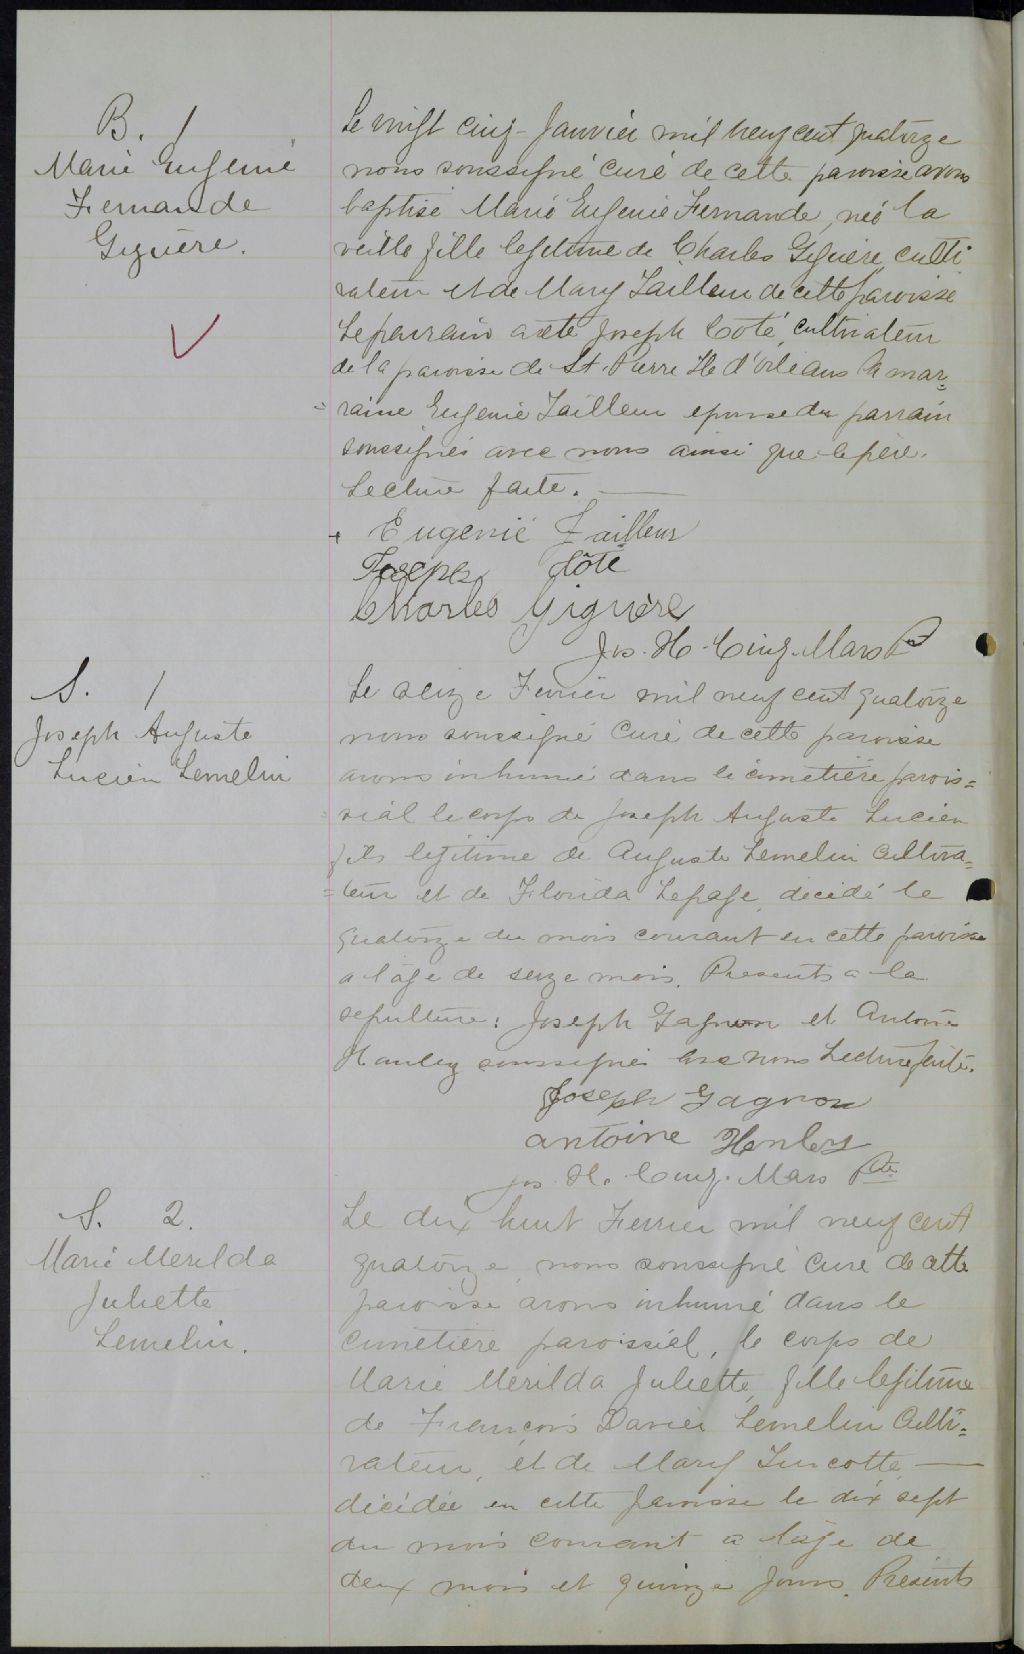 B. 1
Marie Eugenie
Fernande
Giguère.
Le vingt cinq Janvier mil neuf cent quatorze
nous soussigné curé de cette paroisse avons
baptisé Marie Eugenie Fernande, née la
veille fille legitime de Charles Giguère culti
vateur et de Mary Tailleur de cette paroisse
Le parrain a été Joseph Coté, cultivateur
de la paroisse de St Pierre Ile d'orleans la mar=
=raine Eugenie Tailleur epouse du parrain
soussignés avec nous ainsi que le père.
Lecture faite.
Eugenie Tailleur
Joseph Côté
Charles Giguère
Jos. H. Cinq-Mars Ptr
S. 1
Joseph Auguste
Lucien Lemelin
Le seize Fevrier mil neuf cent quatorze
nous soussigné Curé de cette paroisse
avons inhumé dans le cimetière parois=
=sial le corps de Joseph Auguste Lucien
fils legitime de Auguste Lemelin Cultiva=
=teur et de Florida Lepage, decidé le
quatorze du mois courant en cette paroisse
a l'age de seize mois. Presents a la
sepulture: Joseph Gagnon et Antoine
Hanley soussignés avec nous Lecture faite.
Joseph Gagnon
antoine Henley
Jos. H. Cinq-Mars Ptr
S. 2.
Marie Merilda
Juliette
Lemelin.
Le dix huit Fevrier mil neuf cent
quatorze, nous soussigné Curé de cette
paroisse avons inhumé dans le
cimetière paroissial, le corps de
Marie Merilda Juliette, fille legitime
de François Xavier Lemelin Culti=
vateur, et de Mary Turcotte
décidée en cette paroisse le dix sept
du mois courant a l'age de
deux mois et quinze jours. Présents